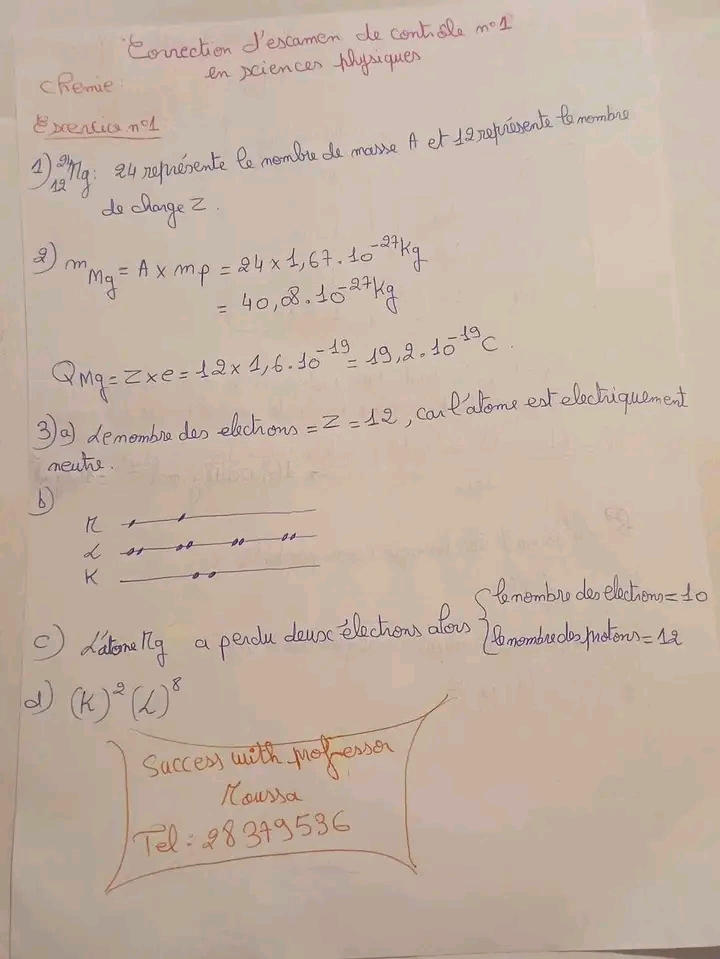 Correction d'escamen de contrôle n°1
en sciences physiques
Chemie:
Exercice n°1
1) ²⁴₁₂Mg: 24 représente le nombre de masse A et 12 représente le nombre
de charge Z.
2) m_Mg = A x mp = 24 x 1,67.10⁻²⁷Kg
= 40,08.10⁻²⁷Kg
Q_Mg = Z x e = 12 x 1,6.10⁻¹⁹ = 19,2.10⁻¹⁹C.
3) a) Le nombre des electrons = Z = 12, car l'atome est electriquement
neutre.
b)
M
L
K
c) L'atome Mg a perdu deux électrons alors { le nombre des electrons = 10
le nombre des protons = 12
d) (K)² (L)⁸
Success with professor
Moussa
Tel: 28379536